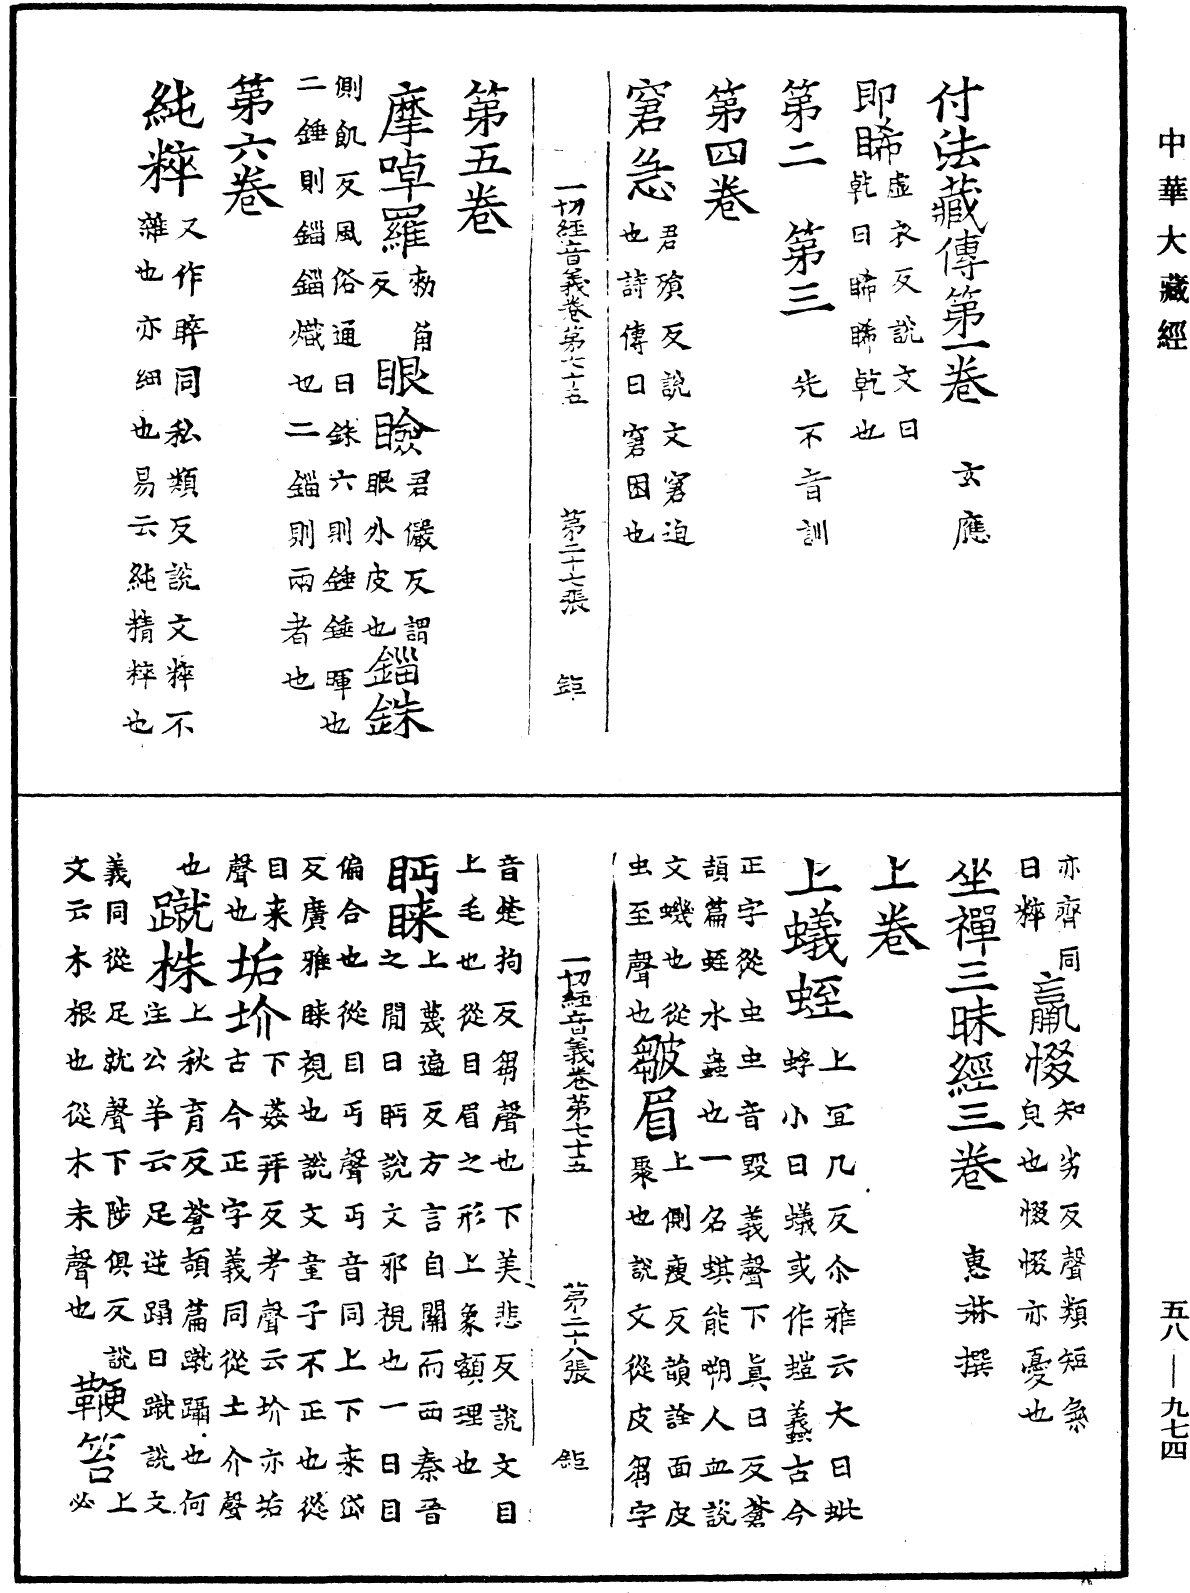 中華大藏經
付法藏傳第一卷 玄應
即睎虛衣反說文曰乾曰睎睎乾也
第二 第三 先不音訓
第四卷
窘急君殞反說文窘迫也詩傳曰窘困也
一切經音義卷第七十五 第二十七張 鉅
第五卷
摩啅羅勑角反眼瞼君儼反謂眼外皮也錙銖
側飢反風俗通曰銖六則錘錘暉也二錘則錙錙熾也二錙則兩者也
第六卷
純粹又作睟同私類反說文粹不雜也亦細也易云純精粹也
亦齊同曰粹羸惙知劣反聲類短氣皃也惙惙亦憂也
坐禪三昧經三卷 惠琳撰
上卷
上蟻蛭上冝几反尒雅云大曰蚍蜉小曰蟻或作螘義古今
正字從虫虫音毀義聲下真日反蒼頡篇蛭水蟲也一名蜞能唽人血說
文蟣也從虫至聲也皺眉上側瘦反韻詮面皮聚也說文從皮芻字
音楚拘反芻聲也下美悲反說文目上毛也從目眉之形上象額理也
眄睞上蔑遍反方言自關而西秦晉之閒曰眄說文邪視也一曰目
偏合也從目丏聲丏音同上下来岱反廣雅睞視也說文童子不正也從
目来聲也垢圿下姦拜反考聲云圿亦垢也古今正字義同從土介聲
也蹴株上秋育反蒼頡篇蹴躡也何注公羊云足逆蹋曰蹴說文
義同從足就聲下陟俱反說文云木根也從木朱聲也鞭笞上必
一切經音義卷第七十五 第二十八張 鉅
五八—九七四